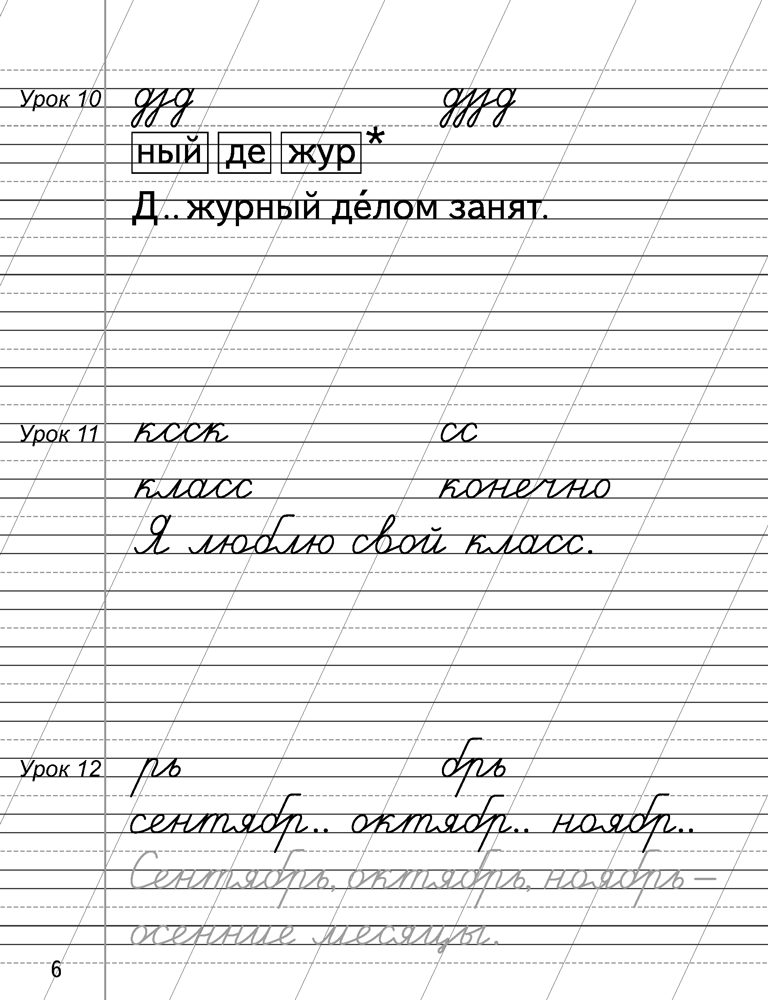 Урок 10 дjд дjjд
ный де жур*
Д..журный де́лом занят.
Урок 11 ксск сс
класс конечно
Я люблю свой класс.
Урок 12 рь брь
сентябр.. октябр.. ноябр..
Сентябрь, октябрь, ноябрь –
осенние месяцы.
6